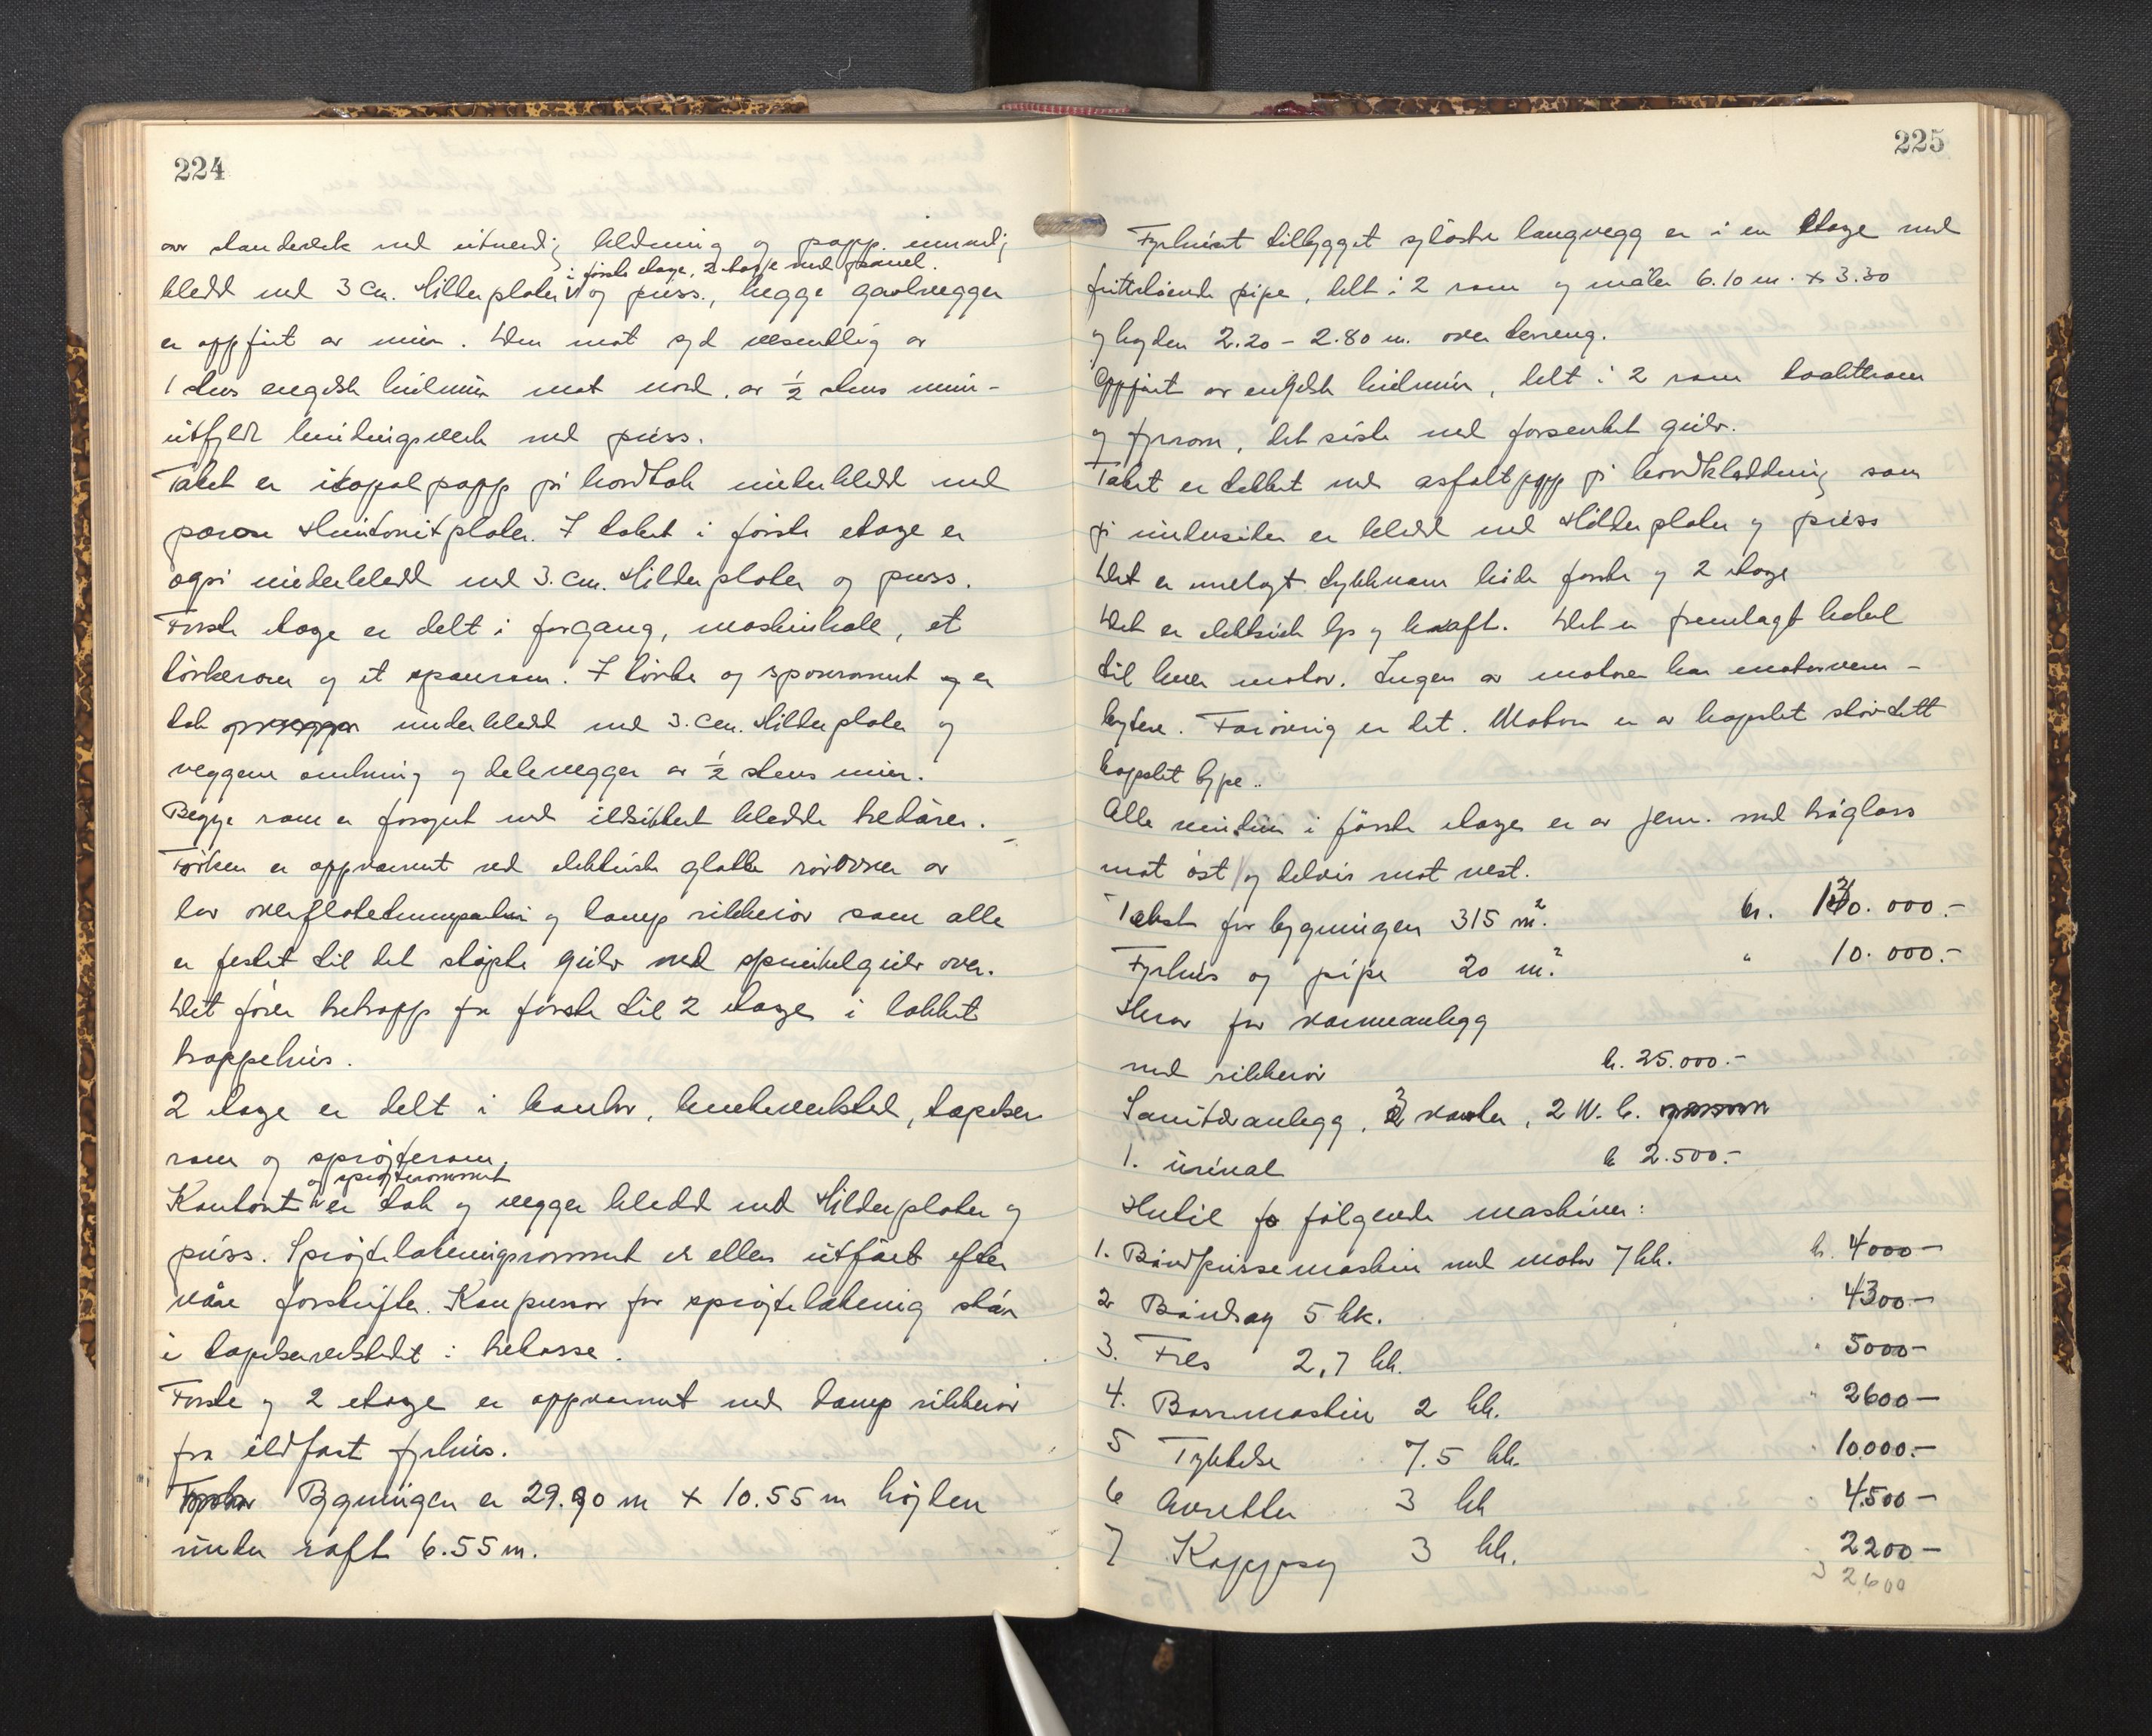 224
av standerverk med utvendig kledning og papp. innvendig
i første etage, 2 etage med panel.
kledd med 3 cm. Hilderplater og puss., begge gavlvegger
er oppført av mur. Den mot syd vesentlig av
1 stens engelsk hulmur mot nord, av ½ stens mur-
utfyldt bindingsverk med puss.
Taket er icopal papp på bordtak underkledd med
porøse Huntonitplater. I taket i første etage er
også underkledd med 3. cm. Hilderplater og puss.
Første etage er delt i forgang, maskinhall, et
tørkerom og et sponrom. I tørke og sponrommet er
tak underkledd med 3. cm. Hilderplater og
veggene omkring og delevegger av ½ stens mur.
Begge rom er forsynt med ildsikkert kledde tredører.
Tørken er oppvarmet ved elektriske glatte rørovner av
lav overflatetemperatur og damp ribberør som alle
er festet til det støpte gulv med sprinkelgulv over.
Det fører tretrapp fra første til 2 etage i lukket
trappehus.
2 etage er delt i kontor, benkeverksted, tapetser
rom og sprøjterom.
og sprøjterommet
Kontoret er tak og vegger kledd med Hilderplater og
puss. Sprøjtelakeringsrommet er ellers utført efter
våre forskrifter. Kompressor for sprøjtelakering står
i tapetserverkstedet i trekasse.
Første og 2 etage er oppvarmet med damp ribberør
fra ildfast fyrhus.
Bygningen er 29.90 m x 10.55 m højden
under raft 6.55 m.
225
Fyrhuset tilbygget østre langvegg er i en etage med
frittstående pipe, delt i 2 rom og måler 6.10 m. x 3.30
og høyden 2.20 – 2.80 m. over terreng.
Oppført av engelsk hulmur, delt i 2 rom toalettrom
og fyrrom, det siste med forsenket gulv.
Taket er tekket med asfaltpapp på bordkledning som
på undersiden er kledd med Hilderplater og puss
Det er innlagt trykkvann både første og 2 etage
Det er elektrisk lys og kraft. Det er fremlagt kabel
til hver motor. Ingen av motorer har motorvern-
brytere. Forøvrig er det. Motorer er av kapslet støvtett
kapslet type..
Alle vinduer i første etage er av jern. med trådglass
mot øst og delvis mot vest.
Takst for bygningen 315 m². kr. 120.000.-
Fyrhus og pipe 20 m². " 10.000.-
Herav for varmeanlegg
med ribberør kr. 25.000.-
Sanitæranlegg, 3 vasker, 2 W.C.
1. urinal kr 2.500.-
Hertil følgende maskiner:
1. Båndpussemaskin med motor 7 hk. kr. 4000–
2 Båndsag 5 hk. 4300.–
3. Fres 2,7 hk. " 5000–
4. Borremaskin 2 hk. " 2600–
5 Tykkelse 7.5 hk. " 10000.–
6 Avretter 3 hk 4500–
7 Kappsag 3 hk. 2200–
32600